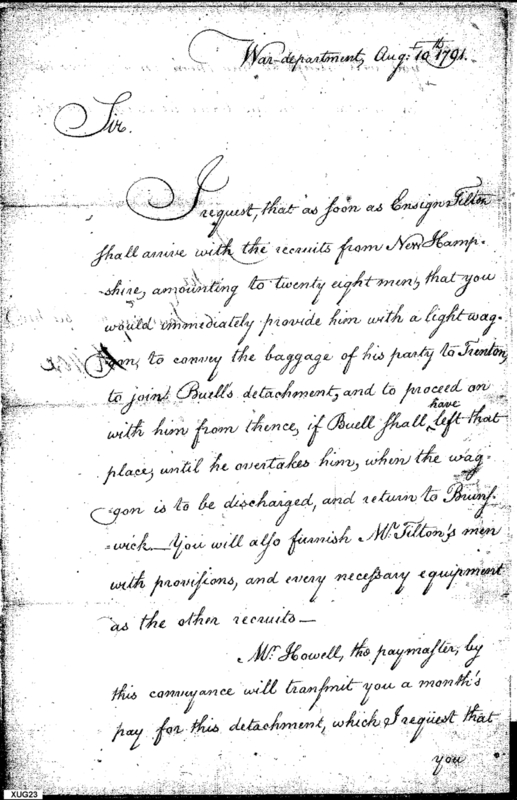 War-department, Aug: 10th 1791.
Sir.
I request, that as soon as Ensign Tilton
shall arrive with the recruits from New Hamp-
-shire, amounting to twenty eight men, that you
would immediately provide him with a light wag-
-gon, to convey the baggage of his party to Trenton,
to join Buell's detachment, and to proceed on
with him from thence, if Buell shall have left that
place, until he overtakes him, when the wag-
-gon is to be discharged, and return to Bruns-
-wick_ You will also furnish Mr. Tilton's men
with provisions, and every necessary equipment
as the other recruits_
Mr. Howell, the paymaster, by
this conveyance will transmit you a month's
pay for this detachment, which I request that
you
XUG23